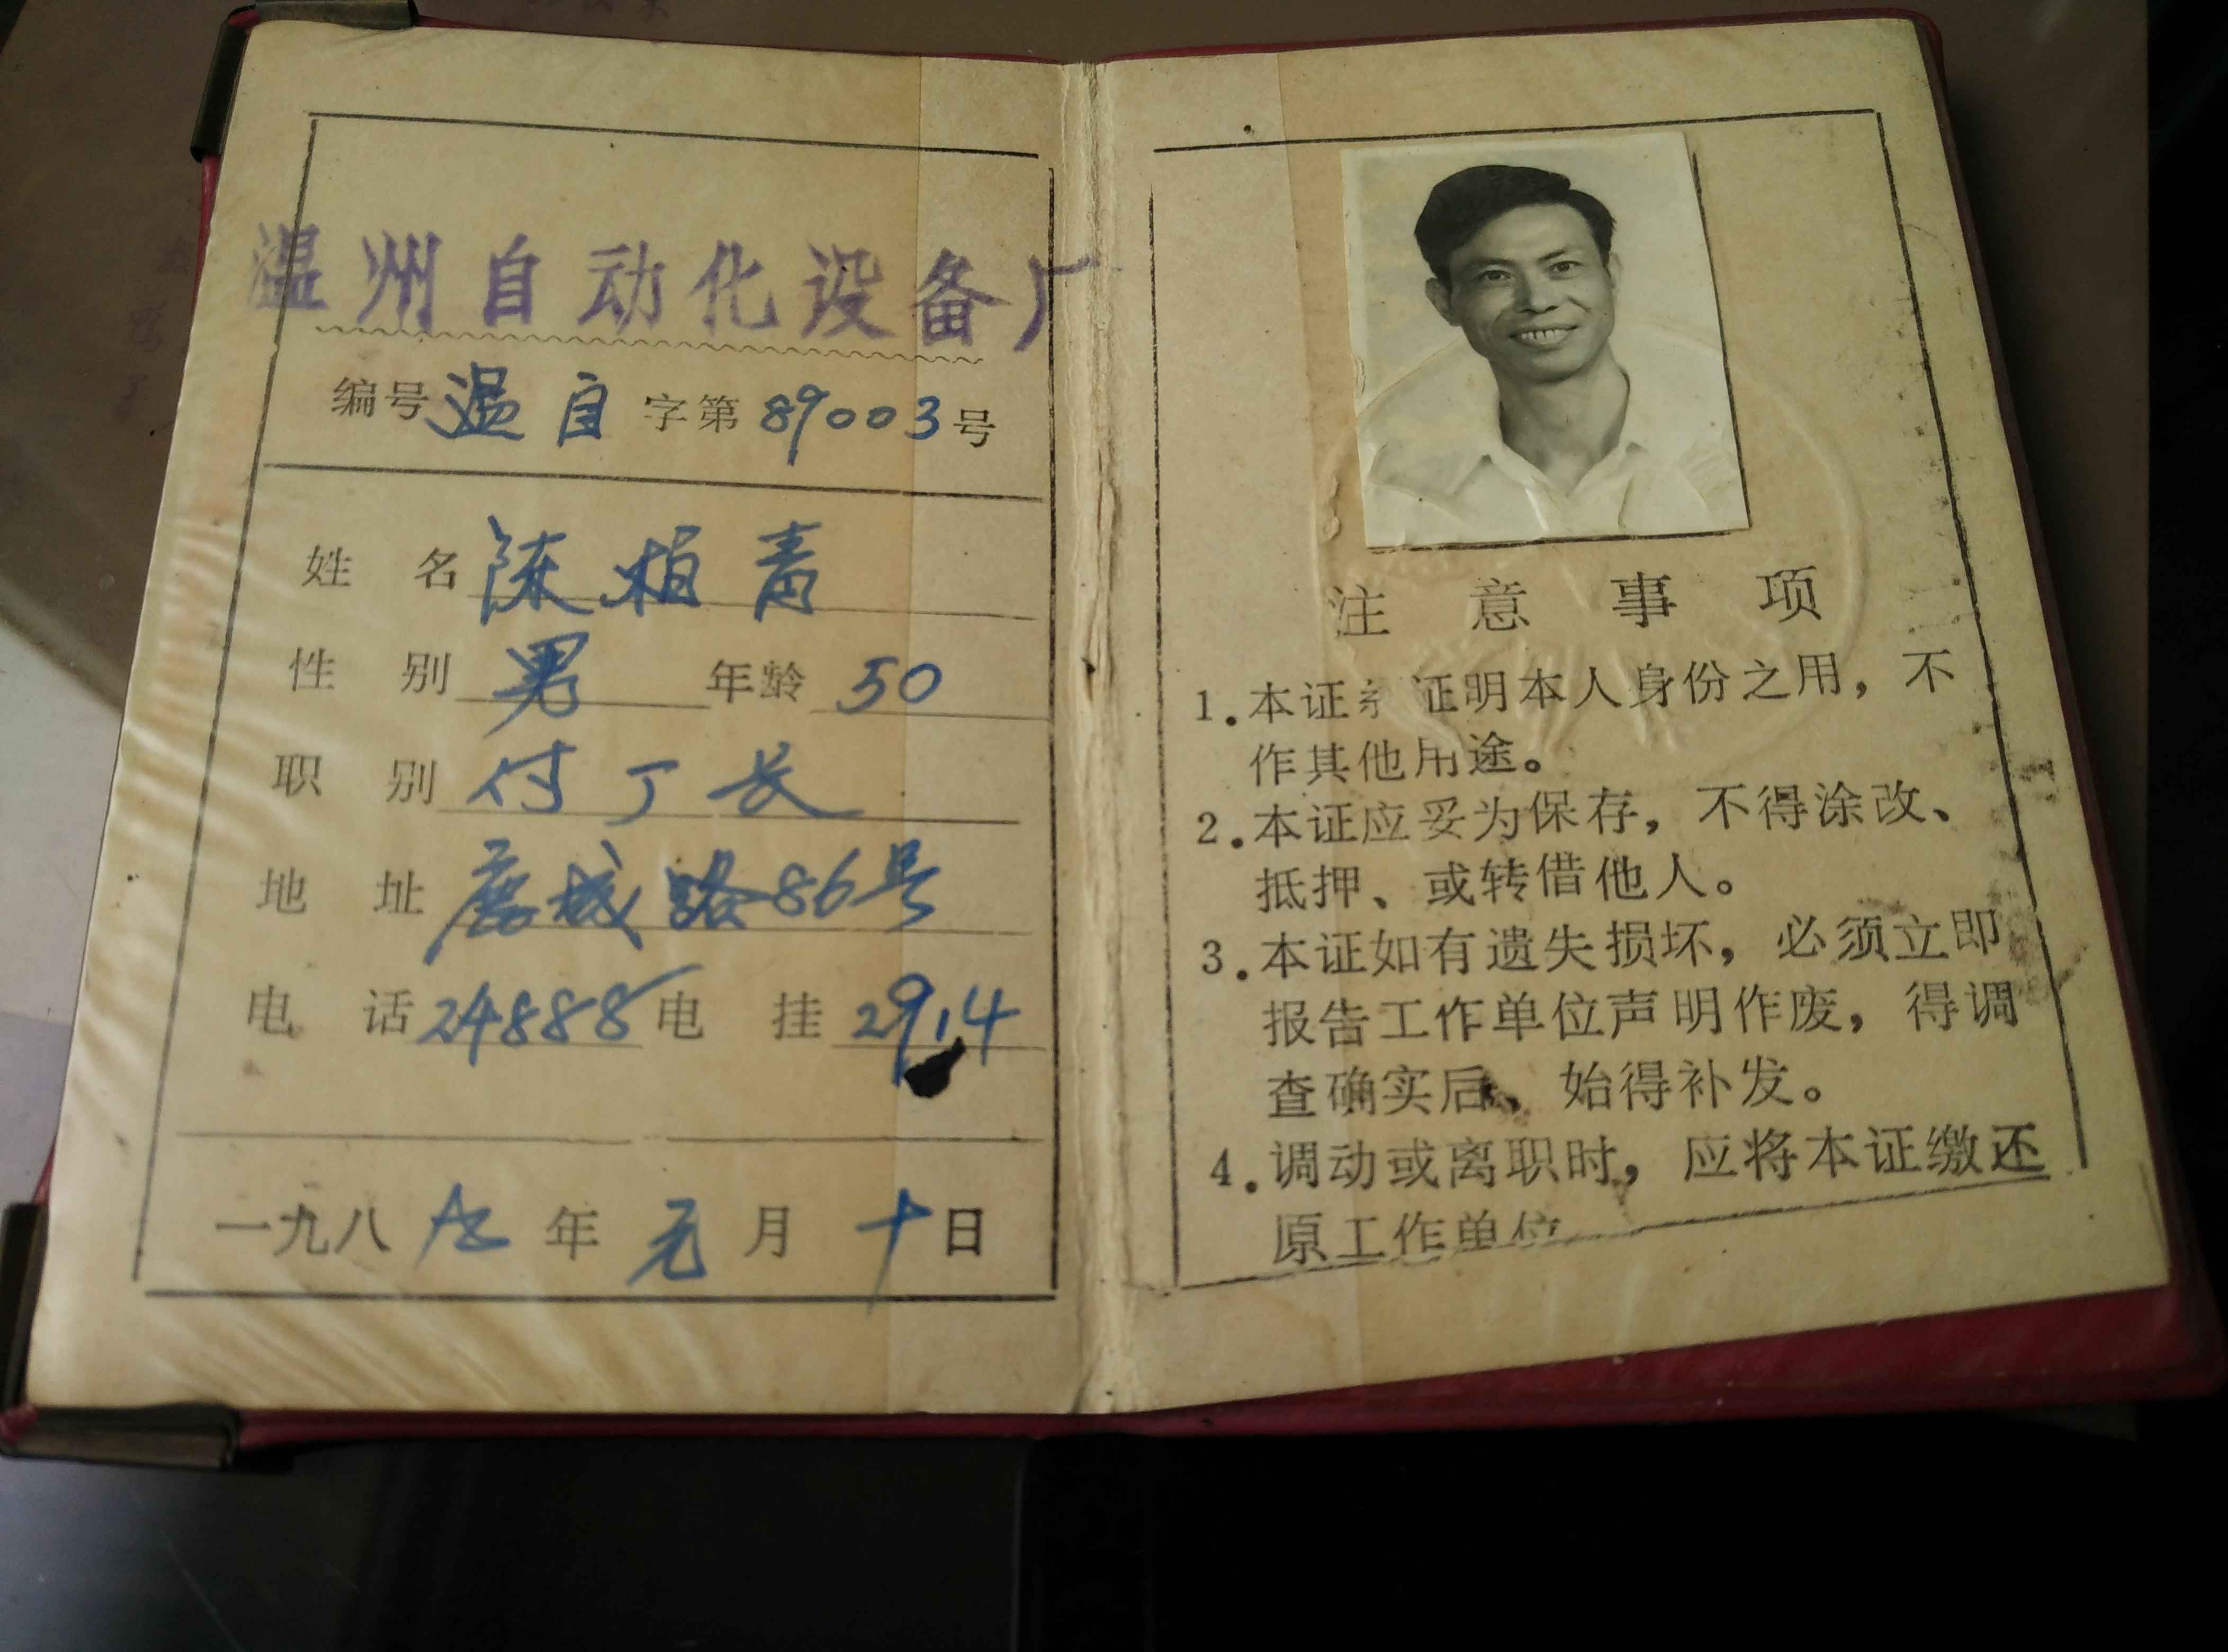 温州自动化设备厂
编号 温自 字第 89003 号
姓 名 陈柏青
性 别 男 年龄 50
职 别 付厂长
地 址 鹿城路86号
电 话 24888 电 挂 2914
一九八九年元月十日
注 意 事 项
1.本证系证明本人身份之用，不
作其他用途。
2.本证应妥为保存，不得涂改、
抵押、或转借他人。
3.本证如有遗失损坏，必须立即
报告工作单位声明作废，得调
查确实后、始得补发。
4.调动或离职时，应将本证缴还
原工作单位